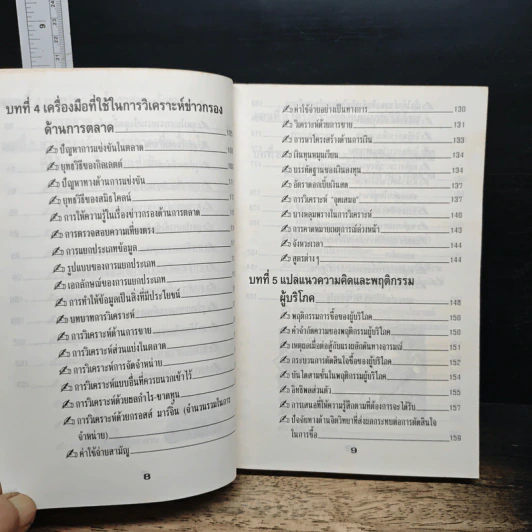 บทที่ 4 เครื่องมือที่ใช้ในการวิเคราะห์ข่าวกรอง
ด้านการตลาด
ปัญหาการแข่งขันในตลาด
ยุทธวิธีของกิลเลตต์
ปัญหาทางด้านการแข่งขัน
ยุทธวิธีของสมิธไคลน์
การให้ความรู้ในเรื่องข่าวกรองด้านการตลาด
การตรวจสอบความเที่ยงตรง
การแยกประเภทข้อมูล
รูปแบบของการแยกประเภท
เอกลักษณ์ของการแยกประเภท
การทำให้ข้อมูลเป็นสิ่งที่มีประโยชน์
บทบาทการวิเคราะห์
การวิเคราะห์ด้านการขาย
การวิเคราะห์ส่วนแบ่งในตลาด
การวิเคราะห์การจัดจำหน่าย
การวิเคราะห์แบบอื่นที่ควรผนวกเข้าไว้
การวิเคราะห์ด้วยผลกำไร-ขาดทุน
การวิเคราะห์ด้วยกรอสส์ มาร์จิ้น (จำนวนรวมในการ
จำหน่าย)
ค่าใช้จ่ายสามัญ
8
ค่าใช้จ่ายอย่างเป็นทางการ 130
วิเคราะห์ด้วยการขาย 131
การหาโครงสร้างด้านการเงิน 133
เงินทุนหมุนเวียน 134
บรรทัดฐานของเงินลงทุน 134
อัตราดอกเบี้ยเงินสด 137
การวิเคราะห์ "จุดเสมอ" 137
บางหลุมพรางในการวิเคราะห์ 140
การคาดหมายเหตุการณ์ล่วงหน้า 143
จังหวะเวลา 144
สูตรต่างๆ 144
บทที่ 5 แปลแนวความคิดและพฤติกรรม
ผู้บริโภค 148
พฤติกรรมการซื้อของผู้บริโภค 150
คำจำกัดความของพฤติกรรมผู้บริโภค 150
เหตุผลเมื่อต่อสู้กับแรงผลักดันทางอารมณ์ 151
กระบวนการตัดสินใจซื้อของผู้บริโภค 152
บันไดสามขั้นในพฤติกรรมผู้บริโภค 154
อิทธิพลส่วนตัว 155
การเสนอที่ให้ความรู้สึกตามที่ต้องการจะได้รับ 157
ปัจจัยทางด้านจิตวิทยาที่ส่งผลกระทบต่อการตัดสินใจ
ในการซื้อ 159
9